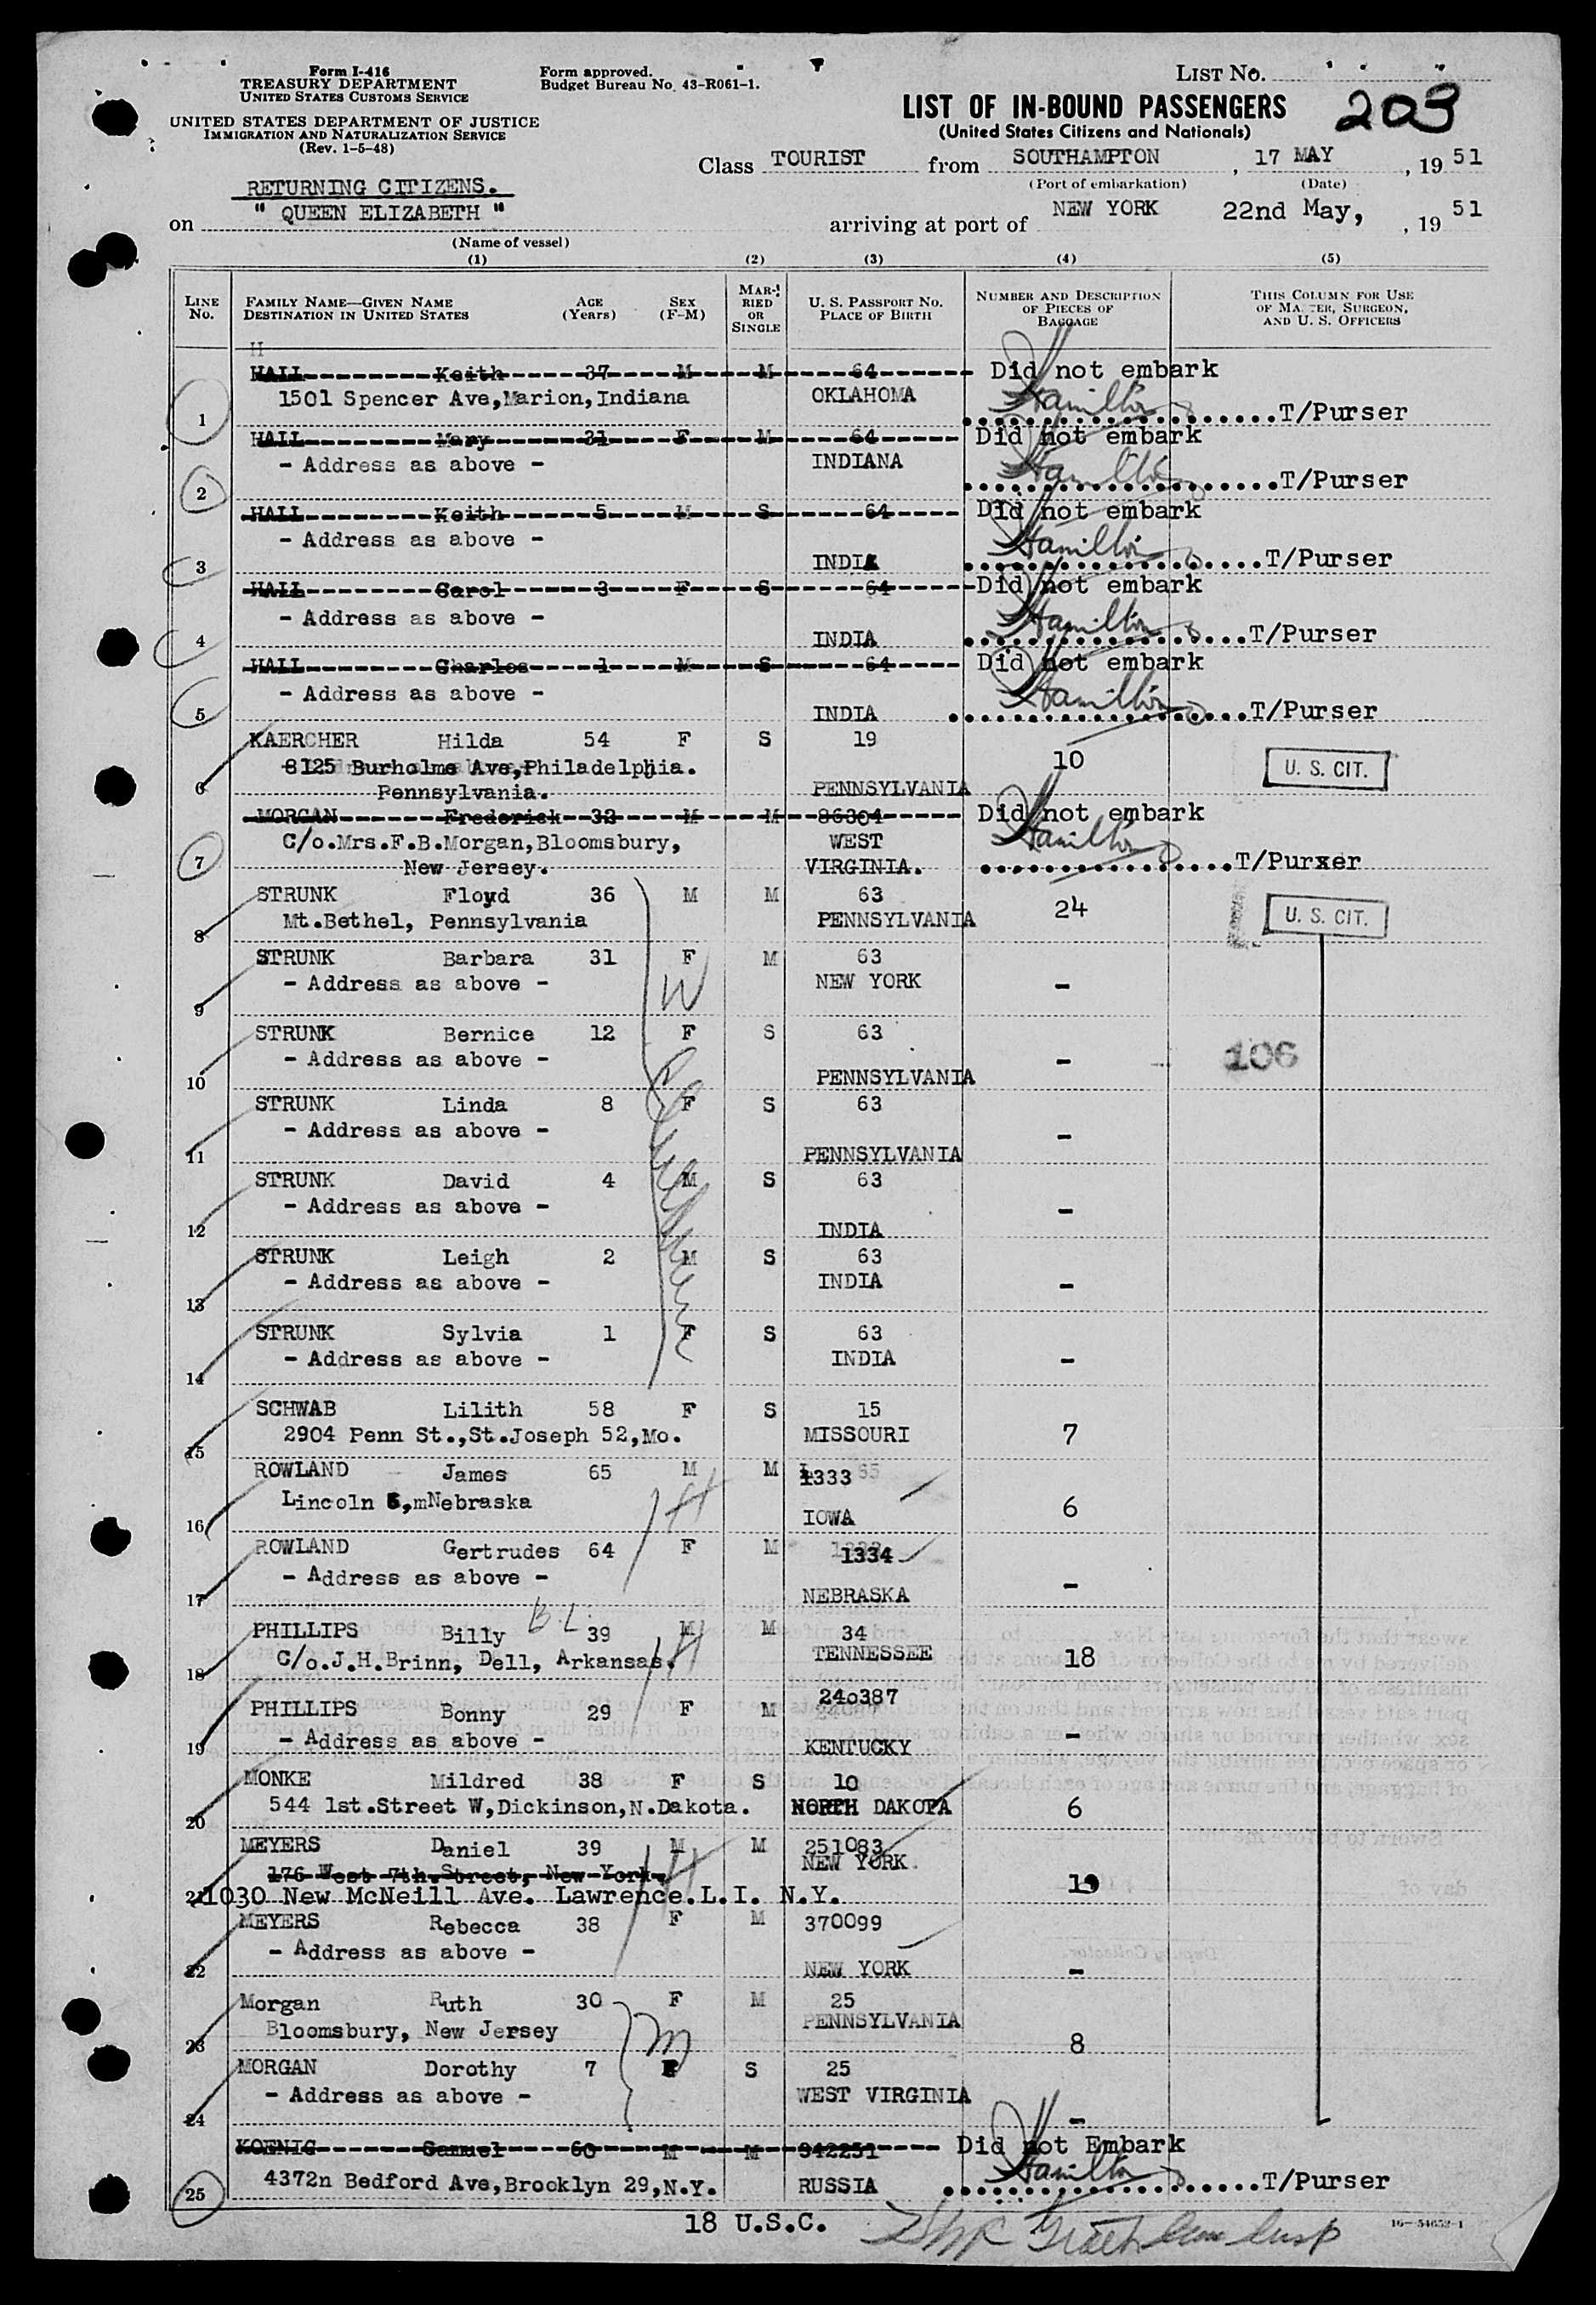 Form I-416
TREASURY DEPARTMENT
UNITED STATES CUSTOMS SERVICE
UNITED STATES DEPARTMENT OF JUSTICE
IMMIGRATION AND NATURALIZATION SERVICE
(Rev. 1-5-48)
Form approved.
Budget Bureau No. 43-R061-1.
LIST NO.
LIST OF IN-BOUND PASSENGERS
203
(United States Citizens and Nationals)
Class TOURIST from SOUTHAMPTON, 17 MAY, 1951
(Port of embarkation) (Date)
RETURNING CITIZENS.
on " QUEEN ELIZABETH " arriving at port of NEW YORK 22nd May, , 1951
(Name of vessel)
(1) (2) (3) (4) (5)
LINE No. FAMILY NAME—GIVEN NAME DESTINATION IN UNITED STATES AGE (Years) SEX (F-M) MARRIED OR SINGLE U. S. PASSPORT NO. PLACE OF BIRTH NUMBER AND DESCRIPTION OF PIECES OF BAGGAGE THIS COLUMN FOR USE OF MASTER, SURGEON, AND U. S. OFFICERS
H
HALL Keith 37 M M 64 Did not embark
1501 Spencer Ave,Marion,Indiana OKLAHOMA
1 Hamilton T/Purser
HALL Mary 31 F M 64 Did not embark
- Address as above - INDIANA
2 Hamilton T/Purser
HALL Keith 5 M S 64 Did not embark
- Address as above -
3 INDIA Hamilton T/Purser
HALL Carol 3 F S 64 Did not embark
- Address as above -
4 INDIA Hamilton T/Purser
HALL Charles 1 M S 64 Did not embark
- Address as above -
5 INDIA Hamilton T/Purser
KAERCHER Hilda 54 F S 19
8125 Burholme Ave,Philadelphia. 10 U. S. CIT.
6 Pennsylvania. PENNSYLVANIA
MORGAN Frederick 33 M M 86304 Did not embark
C/o.Mrs.F.B.Morgan,Bloomsbury, WEST
7 New Jersey. VIRGINIA. Hamilton T/Purxer
STRUNK Floyd 36 M M 63 24 U. S. CIT.
8 Mt.Bethel, Pennsylvania PENNSYLVANIA
STRUNK Barbara 31 F M 63
9 - Address as above - W NEW YORK -
STRUNK Bernice 12 F S 63
- Address as above - - 106
10 PENNSYLVANIA
STRUNK Linda 8 F S 63
- Address as above - -
11 PENNSYLVANIA
STRUNK David 4 M S 63
- Address as above - -
12 INDIA
STRUNK Leigh 2 M S 63
13 - Address as above - INDIA -
STRUNK Sylvia 1 F S 63
14 - Address as above - INDIA -
SCHWAB Lilith 58 F S 15
15 2904 Penn St.,St.Joseph 52,Mo. MISSOURI 7
ROWLAND James 65 M M 1333
Lincoln 6,mNebraska H 6
16 IOWA
ROWLAND Gertrudes 64 F M 1334
- Address as above - -
17 NEBRASKA
B.L.
PHILLIPS Billy 39 M M 34
18 C/o.J.H.Brinn, Dell, Arkansas. H TENNESSEE 18
PHILLIPS Bonny 29 F M 240387
- Address as above - -
19 KENTUCKY
MONKE Mildred 38 F S 10
20 544 1st.Street W,Dickinson,N.Dakota. NORTH DAKOTA 6
MEYERS Daniel 39 M M 251083
176 West 7th.Street, New York. H NEW YORK.
21 1030 New McNeill Ave. Lawrence.L.I. N.Y. 19
MEYERS Rebecca 38 F M 370099
- Address as above -
22 NEW YORK -
Morgan Ruth 30 F M 25
Bloomsbury, New Jersey PENNSYLVANIA
23 M 8
MORGAN Dorothy 7 F S 25
- Address as above - WEST VIRGINIA
24 -
KOENIG Samuel 60 M M 342251 Did not Embark
25 4372n Bedford Ave,Brooklyn 29,N.Y. RUSSIA Hamilton T/Purser
18 U.S.C.
16-54652-1